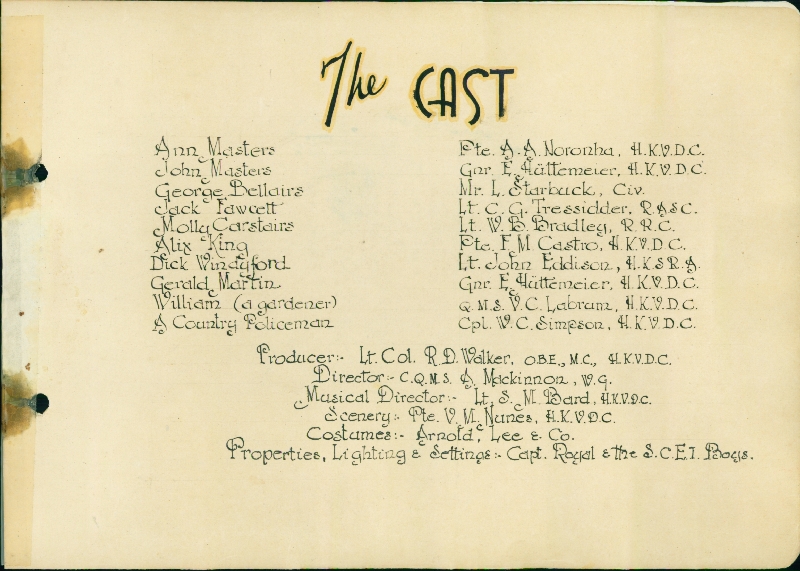 The CAST
Ann Masters Pte. A. A. Noronha, H.K.V.D.C.
John Masters Gnr. E. Hüttemeier, H.K.V.D.C.
George Bellairs Mr. L. Starbuck, Civ.
Jack Fawcett Lt. C. G. Tressidder, R.A.S.C.
Molly Carstairs Lt. W. B. Bradley, R.R.C.
Alix King Pte. F. M Castro, H.K.V.D.C.
Dick Windyford Lt. John Eddison, H.K.S.R.A.
Gerald Martin Gnr. E. Hüttemeier, H.K.V.D.C.
William (a gardener) Q.M.S. V.C. Labrum, H.K.V.D.C.
A Country Policeman Cpl. W.C. Simpson, H.K.V.D.C.
Producer:- Lt. Col. R.D. Walker, O.B.E., M.C., H.K.V.D.C.
Director:- C.Q.M.S. A. Mackinnon, W.G.
Musical Director:- Lt. S. M. Bard, H.K.V.D.C.
Scenery:- Pte. V. M. Nunes, H.K.V.D.C.
Costumes:- Arnold, Lee & Co.
Properties, Lighting & Settings:- Capt. Royal & the S.C.E.I. Boys.